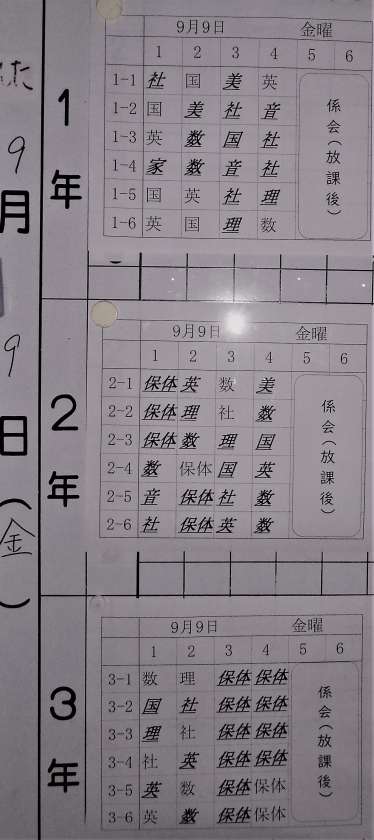 9月9日(金)
1年
9月9日 金曜
1 2 3 4 5 6
1-1 社 国 美 英
1-2 国 美 社 音
1-3 英 数 国 社
1-4 家 数 音 社
1-5 国 英 社 理
1-6 英 国 理 数
係会(放課後)
2年
9月9日 金曜
1 2 3 4 5 6
2-1 保体 英 数 美
2-2 保体 理 社 数
2-3 保体 数 理 国
2-4 数 保体 国 英
2-5 音 保体 社 数
2-6 社 保体 英 数
係会(放課後)
3年
9月9日 金曜
1 2 3 4 5 6
3-1 数 理 保体 保体
3-2 国 社 保体 保体
3-3 理 社 保体 保体
3-4 社 英 保体 保体
3-5 英 数 保体 保体
3-6 英 数 保体 保体
係会(放課後)